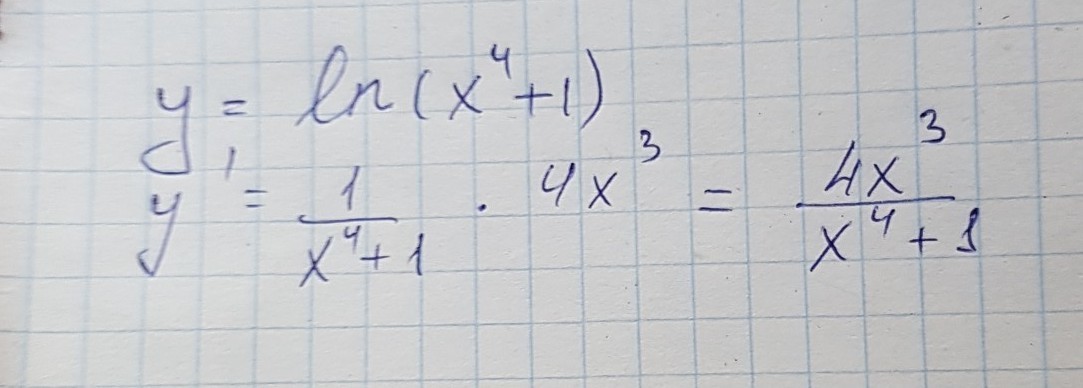 y = ln(x⁴+1)
y' = 1/(x⁴+1) · 4x³ = 4x³/(x⁴+1)